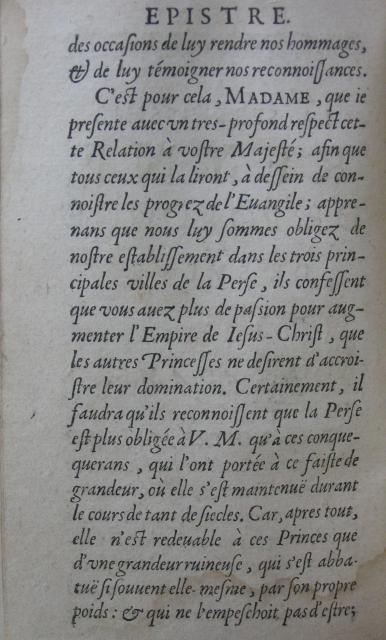 EPISTRE.
des occasions de luy rendre nos hommages,
& de luy témoigner nos reconnoissances.
C'est pour cela, MADAME, que ie
presente auec vn tres-profond respect cet-
te Relation à vostre Majesté; afin que
tous ceux qui la liront, à dessein de con-
noistre les progrez de l'Euangile; appre-
nans que nous luy sommes obligez de
nostre establissement dans les trois prin-
cipales villes de la Perse, ils confessent
que vous auez plus de passion pour aug-
menter l'Empire de Iesus-Christ, que
les autres Princesses ne desirent d'accroi-
stre leur domination. Certainement, il
faudra qu'ils reconnoissent que la Perse
est plus obligée à V. M. qu'à ces conque-
querans, qui l'ont portée à ce faiste de
grandeur, où elle s'est maintenuë durant
le cours de tant de siecles. Car, apres tout,
elle n'est redeuable à ces Princes que
d'vne grandeur ruineuse, qui s'est abba-
tuë si souuent elle-mesme, par son propre
poids: & qui ne l'empeschoit pas d'estre;